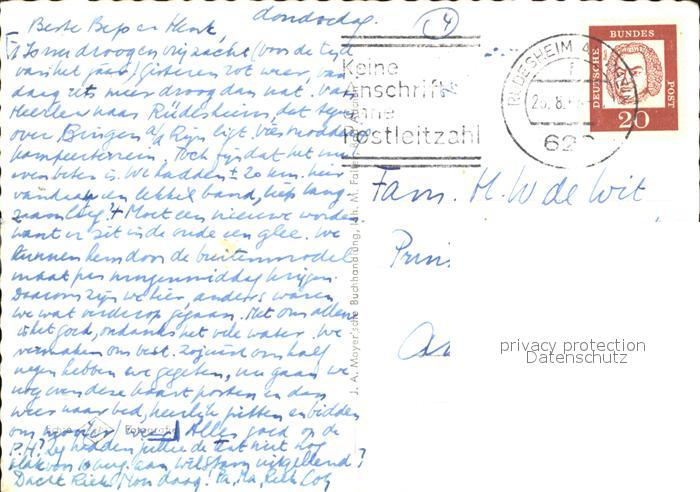 donderdag.
Beste Bep en Henk,
't Is nu droog en vrij zacht (voor de tijd
van het jaar) Gisteren rot weer, van
daag iets meer droog dan nat. Van
Heerlen naar Rüdesheim, dat tegen
over Bingen a/d Rijn ligt. Vies modder
kampeerterrein. Toch fijn dat het nu
even beter is. We hadden ± 20 km. hier
vandaan een lekke band, liep lang-
zaam leeg. Moet een nieuwe worden
want er zit in de oude een glee. We
kunnen hem door de buitenmodel
maat pas morgenmiddag krijgen.
Daarom zijn we hier, anders waren
we wat verderop gegaan. Met ons allen
is het goed, ondanks het vele water. We
vermaken ons best. Zojuist om half
negen hebben we gegeten, nu gaan we
nog even deze kaart posten en dan
weer naar bed, heerlijk pitten en bidden
om mooi weer! Alles goed op de
P.H.? Zeg hadden jullie de tent niet nog
vlak voor
Dag Riek, Pa, Ma, Riek Coby
4
Keine
Anschrift
ohne
Postleitzahl
RÜDESHEIM
26.8.
622
DEUTSCHE BUNDESPOST
20
Fam. H. W de Wit
Prin
J. A. Mayer'sche Buchhandlung, Inh. M. Falter,
privacy protection
Datenschutz